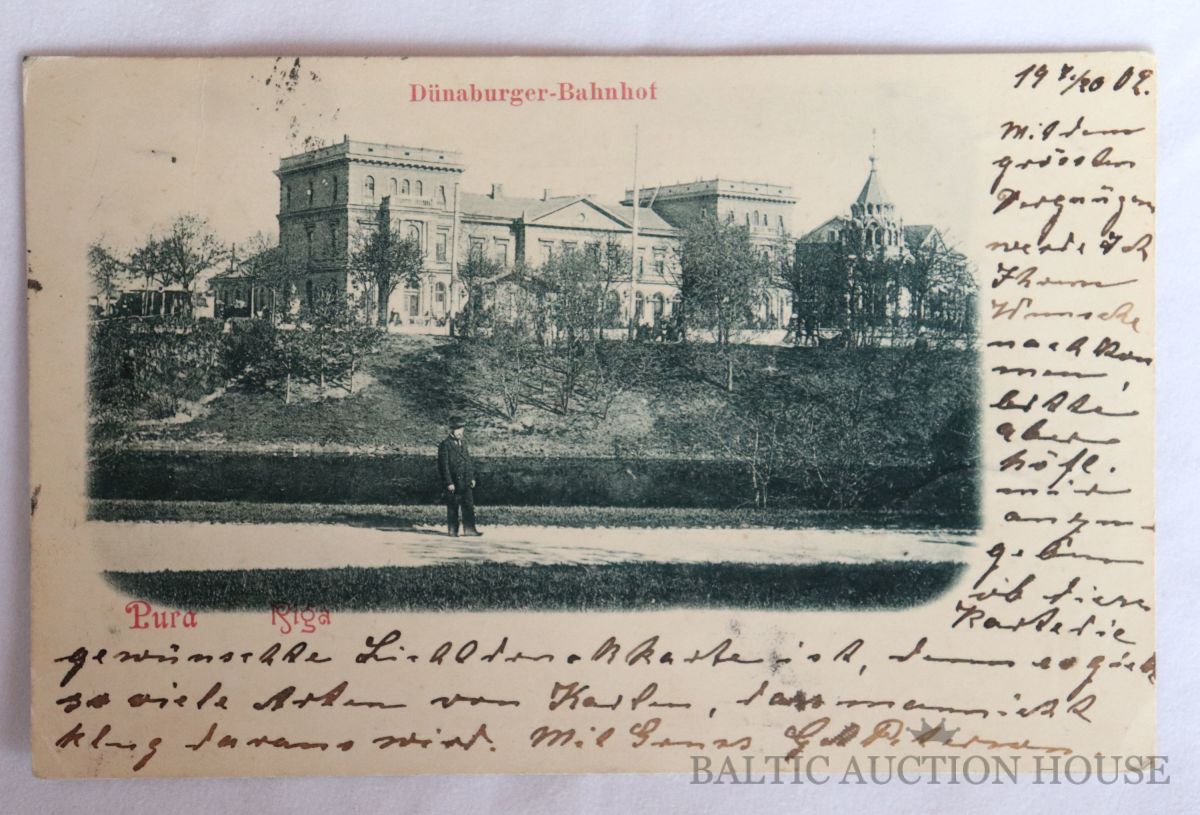 Dünaburger-Bahnhof
19 7/20 02.
Mit dem
grössten
Vergnügen
werde Ich
Ihrem
Wunsche
nachkom
men,
bitte
aber
höfl.
mir
anzu-
geben
ob diese
Karte die
Рига Riga
gewünschte Lichtdruckkarte ist, denn es giebt
so viele Arten von Karten, dass man nicht
klug daraus wird. Mit Gruss
BALTIC AUCTION HOUSE